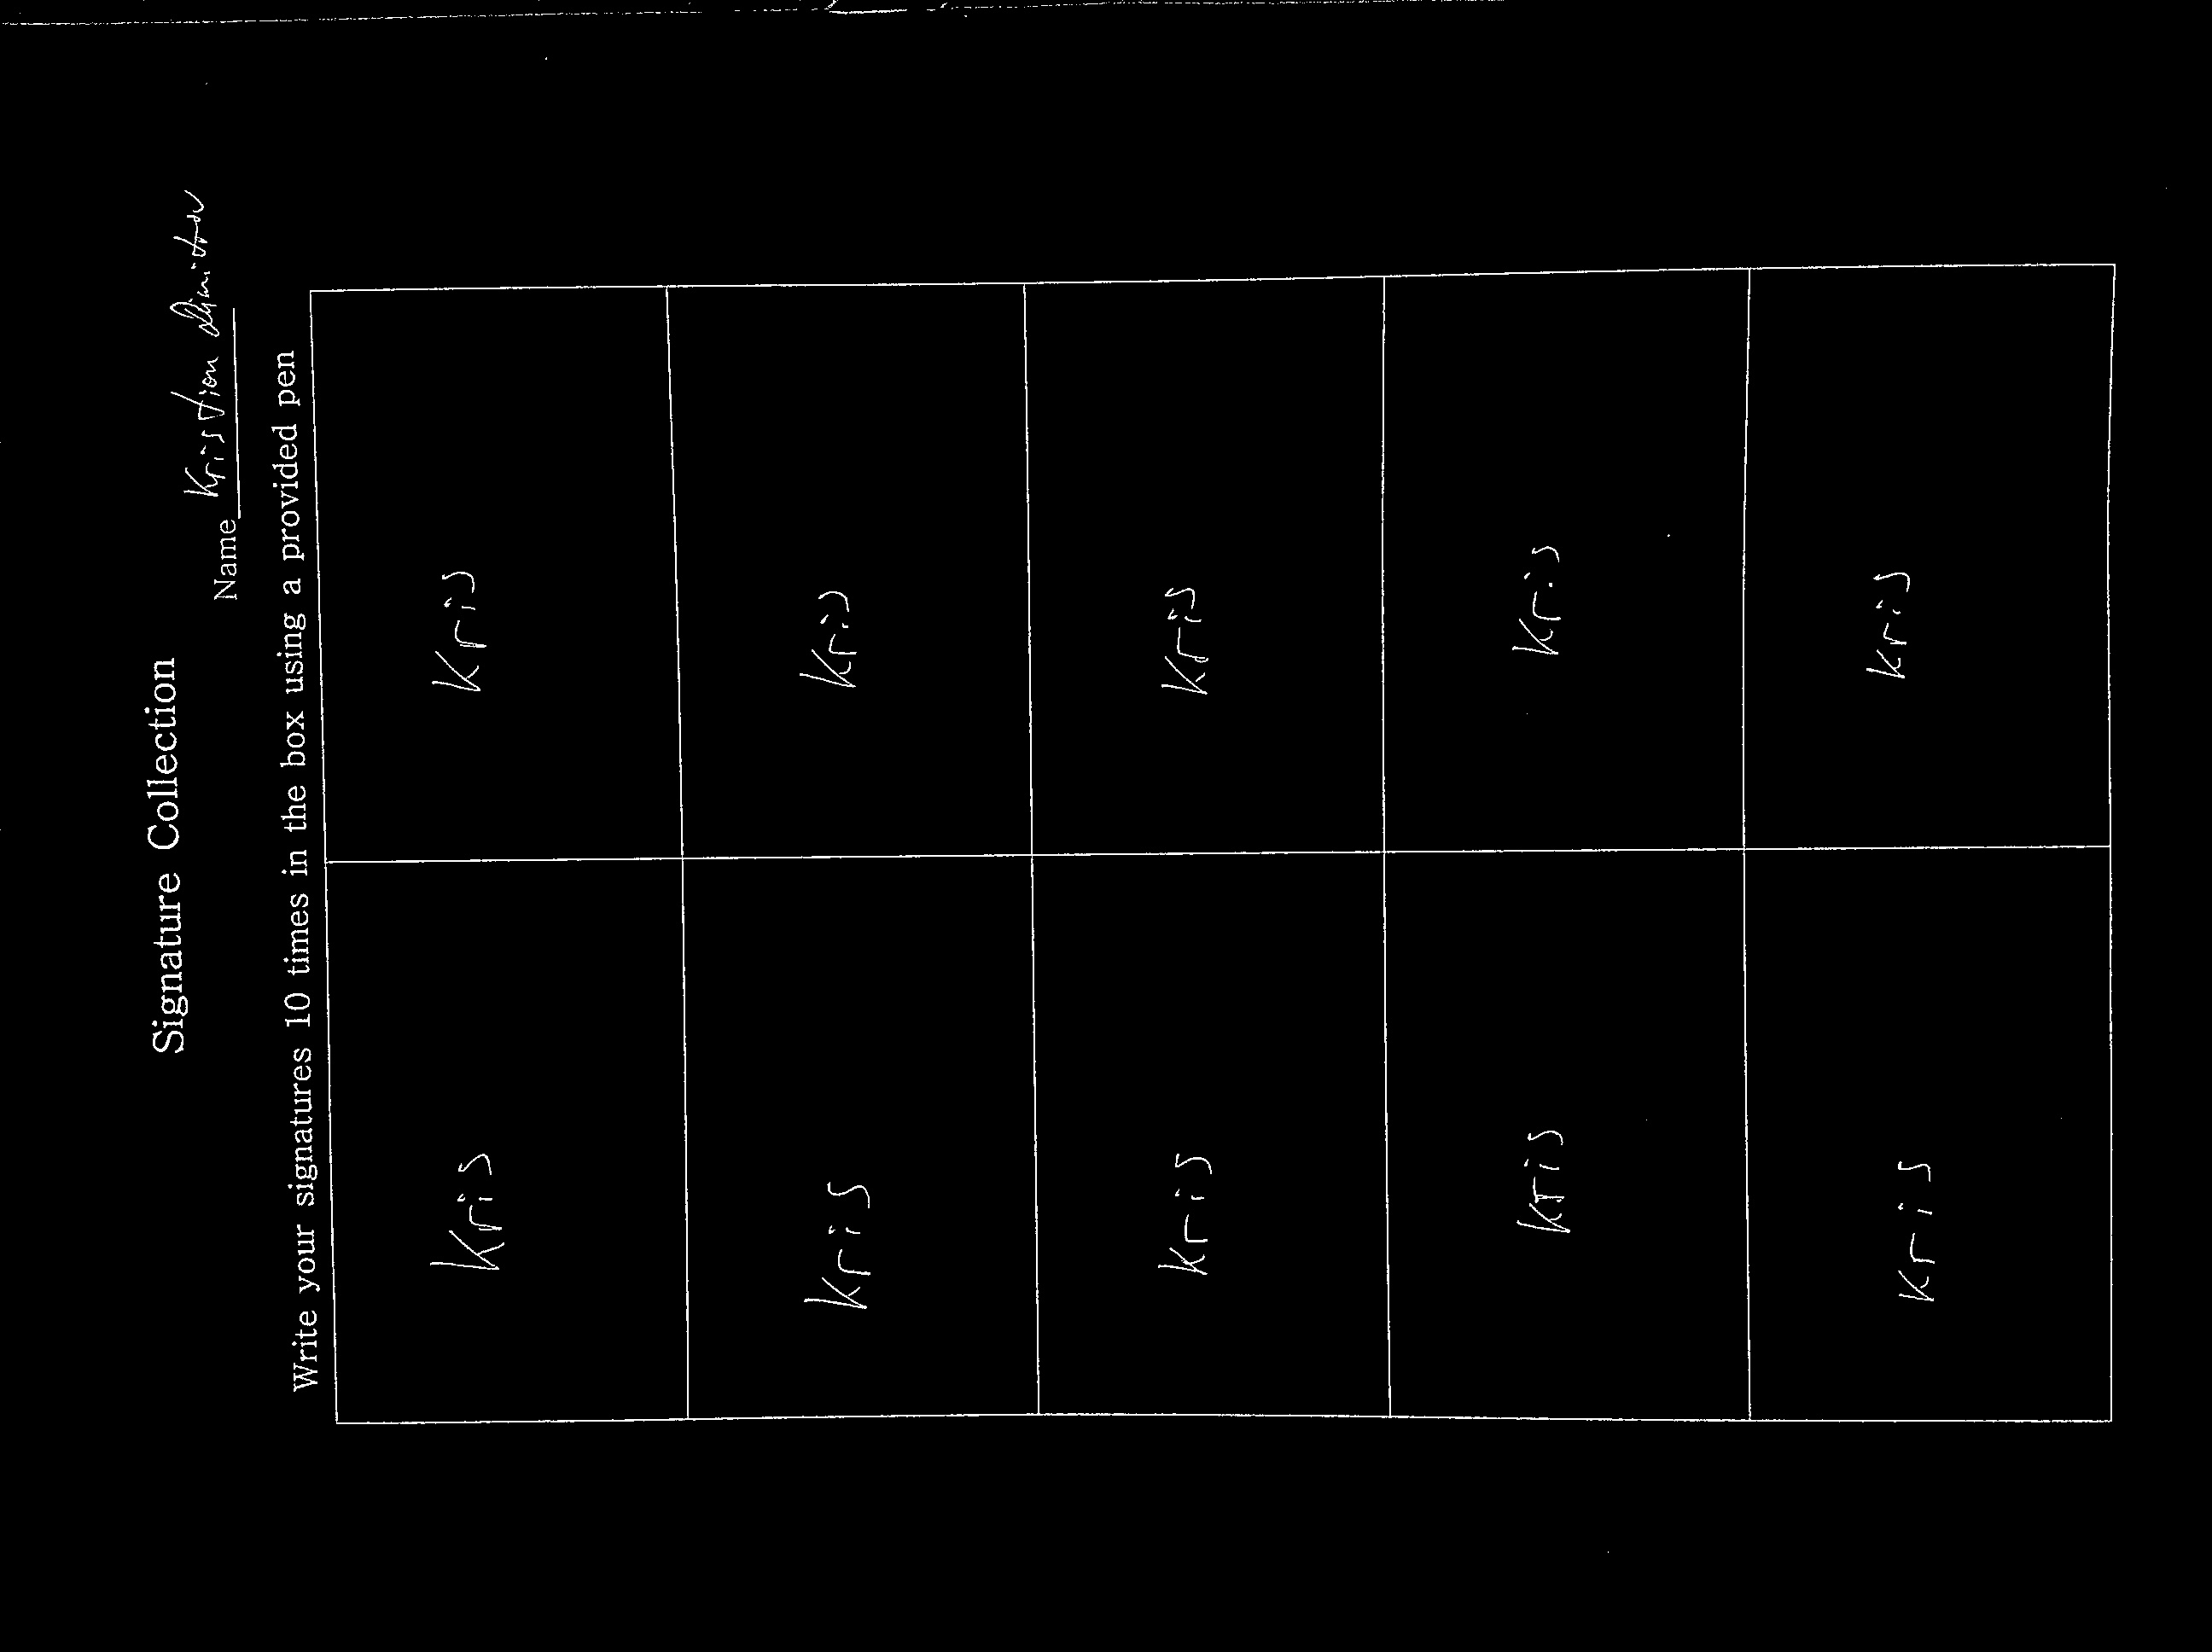 Signature Collection
Name Kristian Dimitrov
Write your signatures 10 times in the box using a provided pen
Kris Kris
Kris Kris
Kris Kris
Kris Kris
Kris Kris